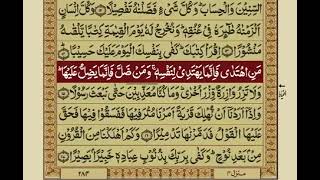 السِّنِيْنَ وَالْحِسَابَ ؕ وَكُلَّ شَیْءٍ فَصَّلْنٰهُ تَفْصِيْلًا ﴿۱۲﴾ وَكُلَّ اِنْسَانٍ
اَلْزَمْنٰهُ طٰٓئِرَهٗ فِیْ عُنُقِهٖ ؕ وَنُخْرِجُ لَهٗ يَوْمَ الْقِيٰمَةِ كِتٰبًا يَّلْقٰىهُ
مَنْشُوْرًا ﴿۱۳﴾ اِقْرَاْ كِتٰبَكَ ؕ كَفٰى بِنَفْسِكَ الْيَوْمَ عَلَيْكَ حَسِيْبًا ﴿۱۴﴾
مَنِ اهْتَدٰى فَاِنَّمَا يَهْتَدِیْ لِنَفْسِهٖ ۚ وَمَنْ ضَلَّ فَاِنَّمَا يَضِلُّ عَلَيْهَا ؕ
وَلَا تَزِرُ وَازِرَةٌ وِّزْرَ اُخْرٰى ؕ وَمَا كُنَّا مُعَذِّبِيْنَ حَتّٰى نَبْعَثَ رَسُوْلًا ﴿۱۵﴾
وَاِذَاۤ اَرَدْنَاۤ اَنْ نُّهْلِكَ قَرْيَةً اَمَرْنَا مُتْرَفِيْهَا فَفَسَقُوْا فِيْهَا فَحَقَّ
عَلَيْهَا الْقَوْلُ فَدَمَّرْنٰهَا تَدْمِيْرًا ﴿۱۶﴾ وَكَمْ اَهْلَكْنَا مِنَ الْقُرُوْنِ
مِنْۢ بَعْدِ نُوْحٍ ؕ وَكَفٰى بِرَبِّكَ بِذُنُوْبِ عِبَادِهٖ خَبِيْرًۢا بَصِيْرًا ﴿۱۷﴾
منزل ۴
۲۸۴